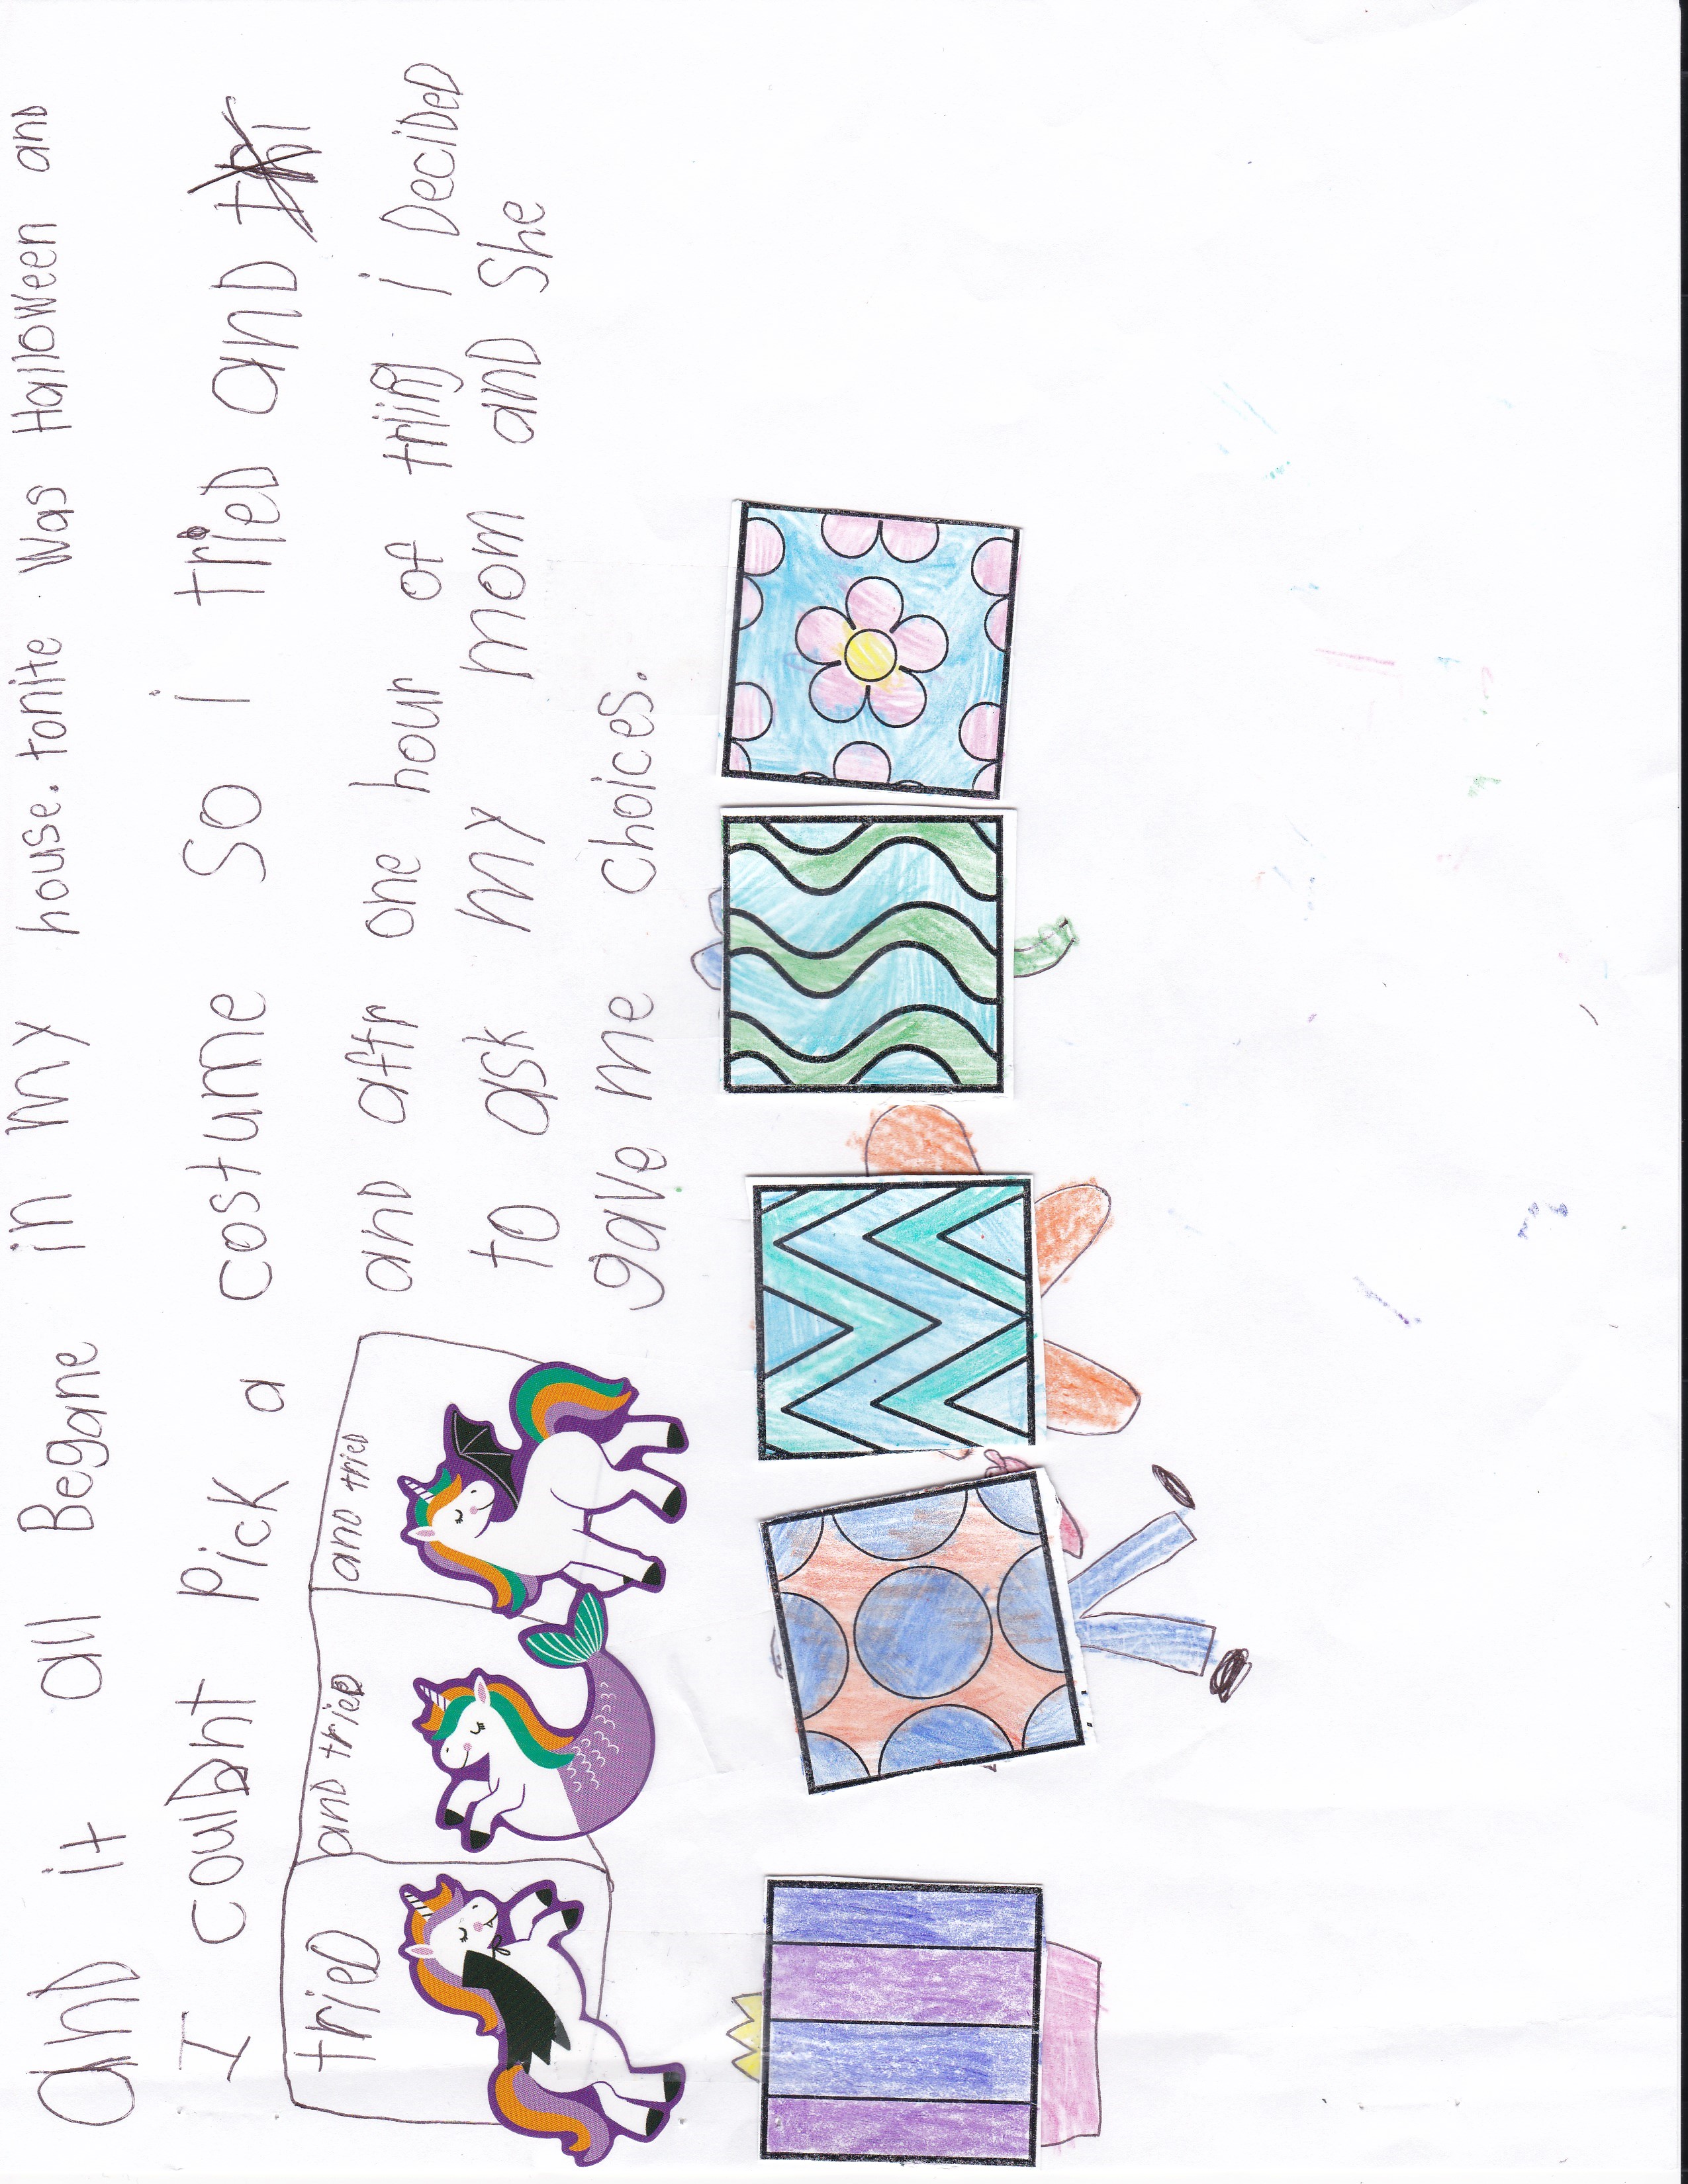 and it all Begane in my house. tonite was Halloween and
I couldnt Pick a costume so i trieD and
trieD and trieD and trieD
and aftr one hour of triing i DeciDeD
to ask my mom and She
gave me choices.